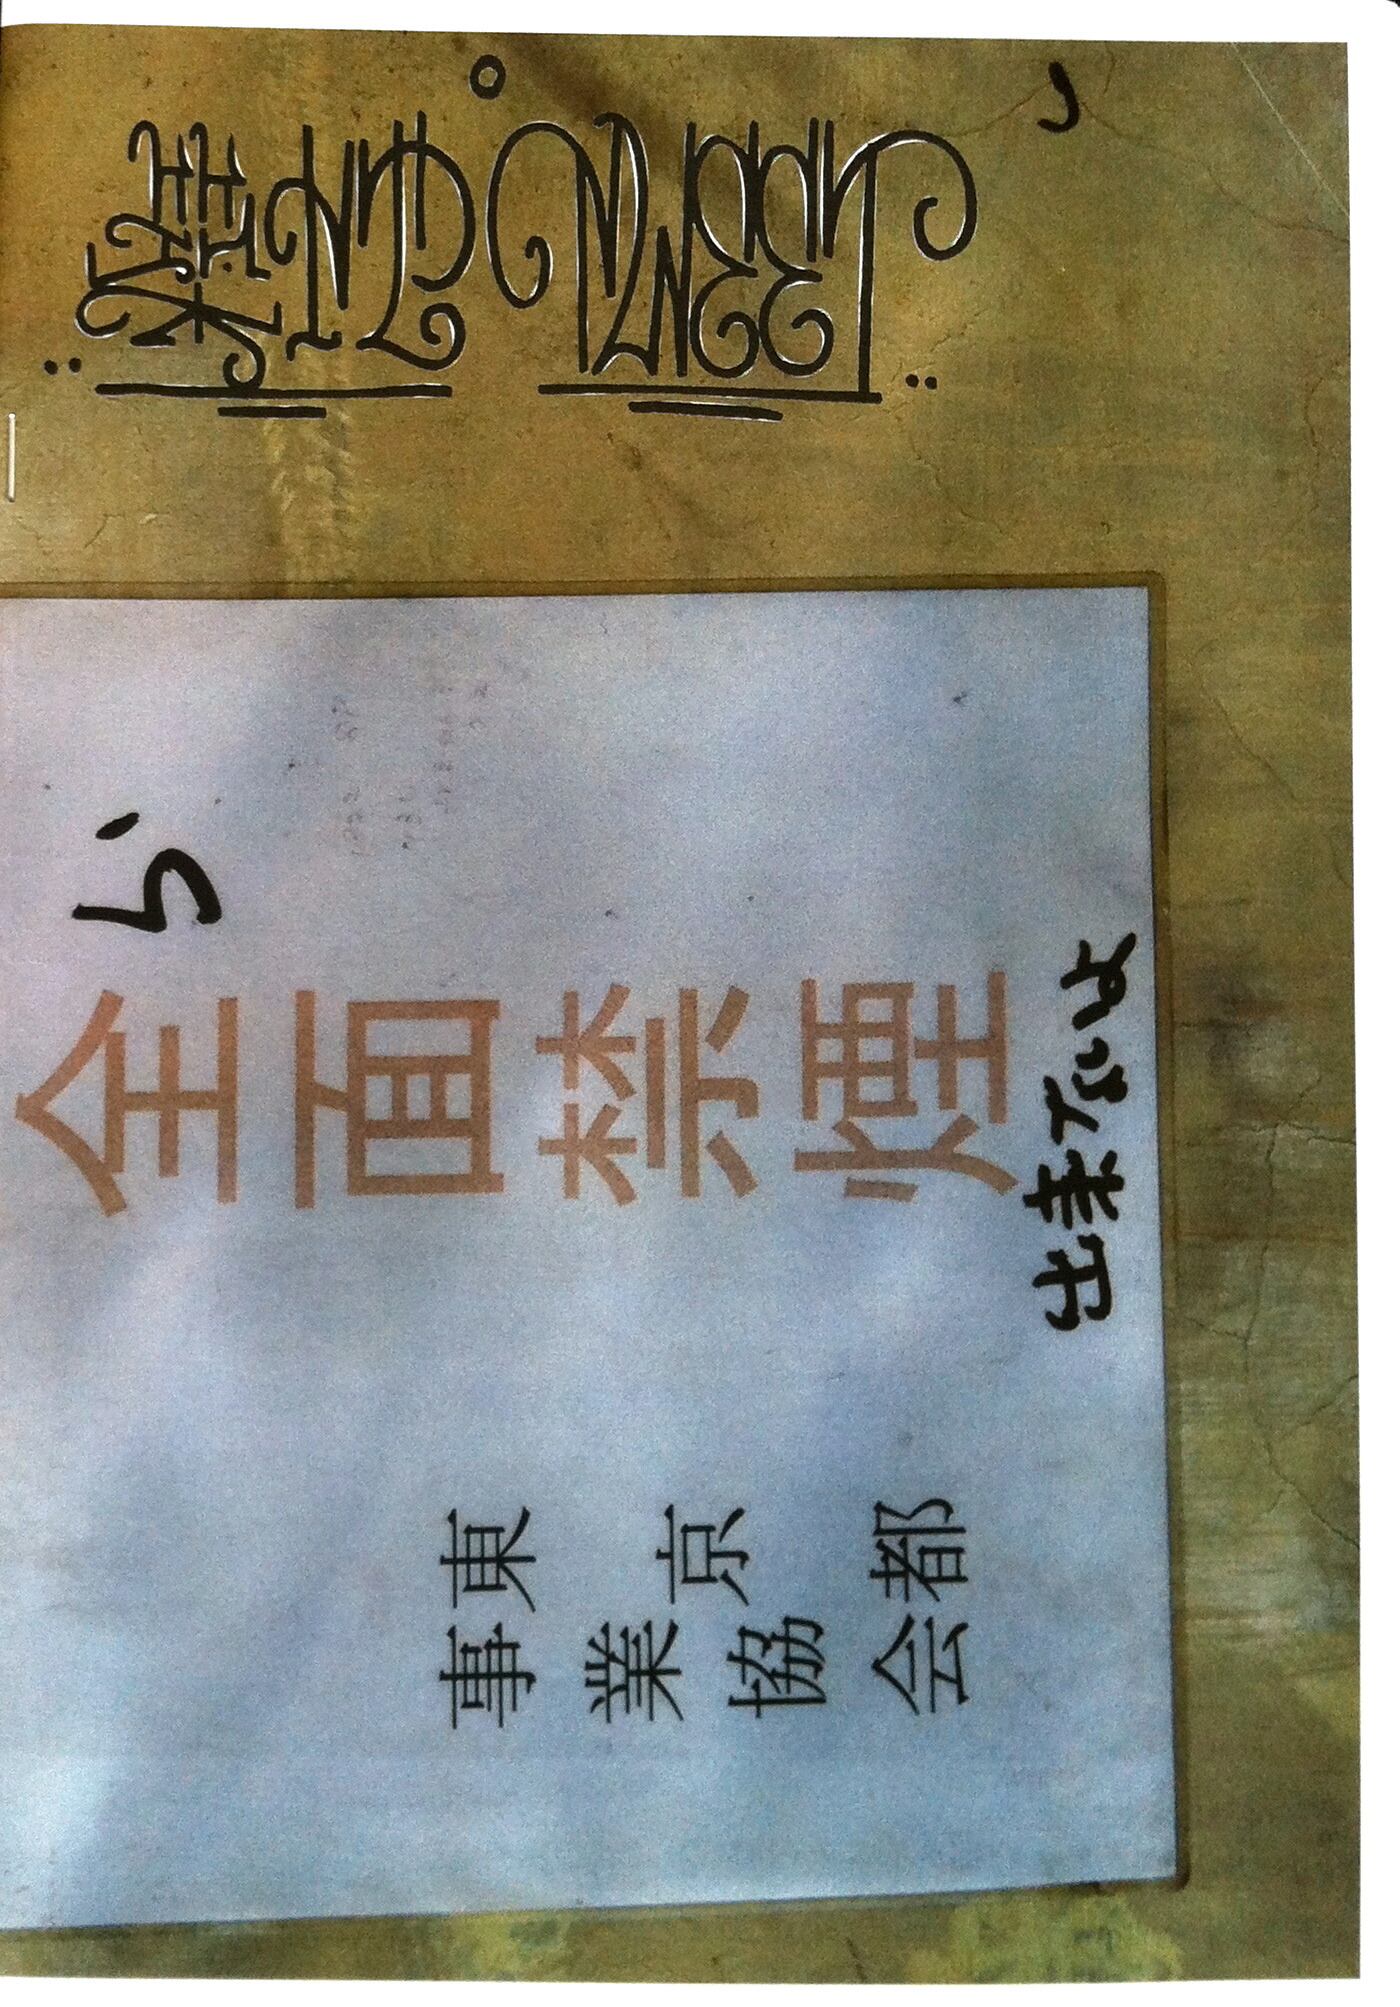 ら
全面禁煙
出来ないよ
東京都
事業協会